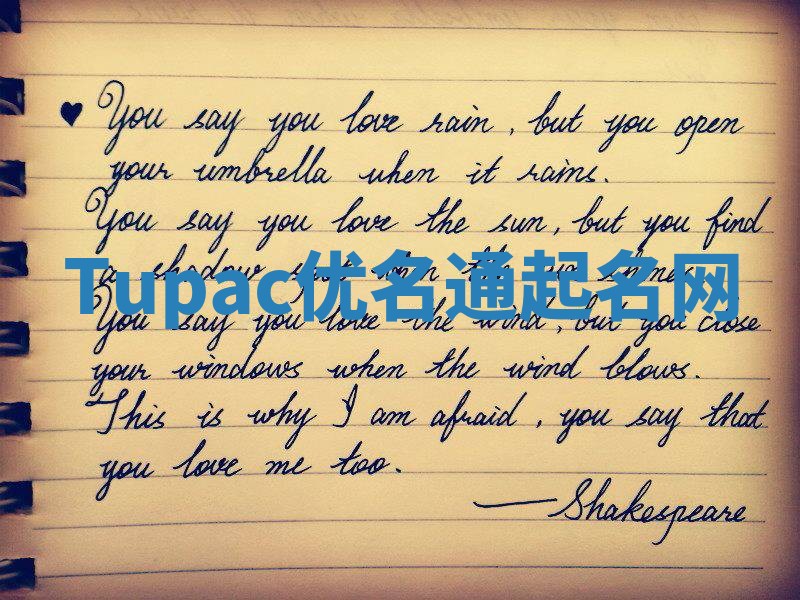 You say you love rain, but you open
your umbrella when it rains.
You say you love the sun, but you find
a shadow spot when the sun shines.
Tupac优名通起名网
You say you love the wind, but you close
your windows when the wind blows.
This is why I am afraid, you say that
you love me too.
—Shakespeare